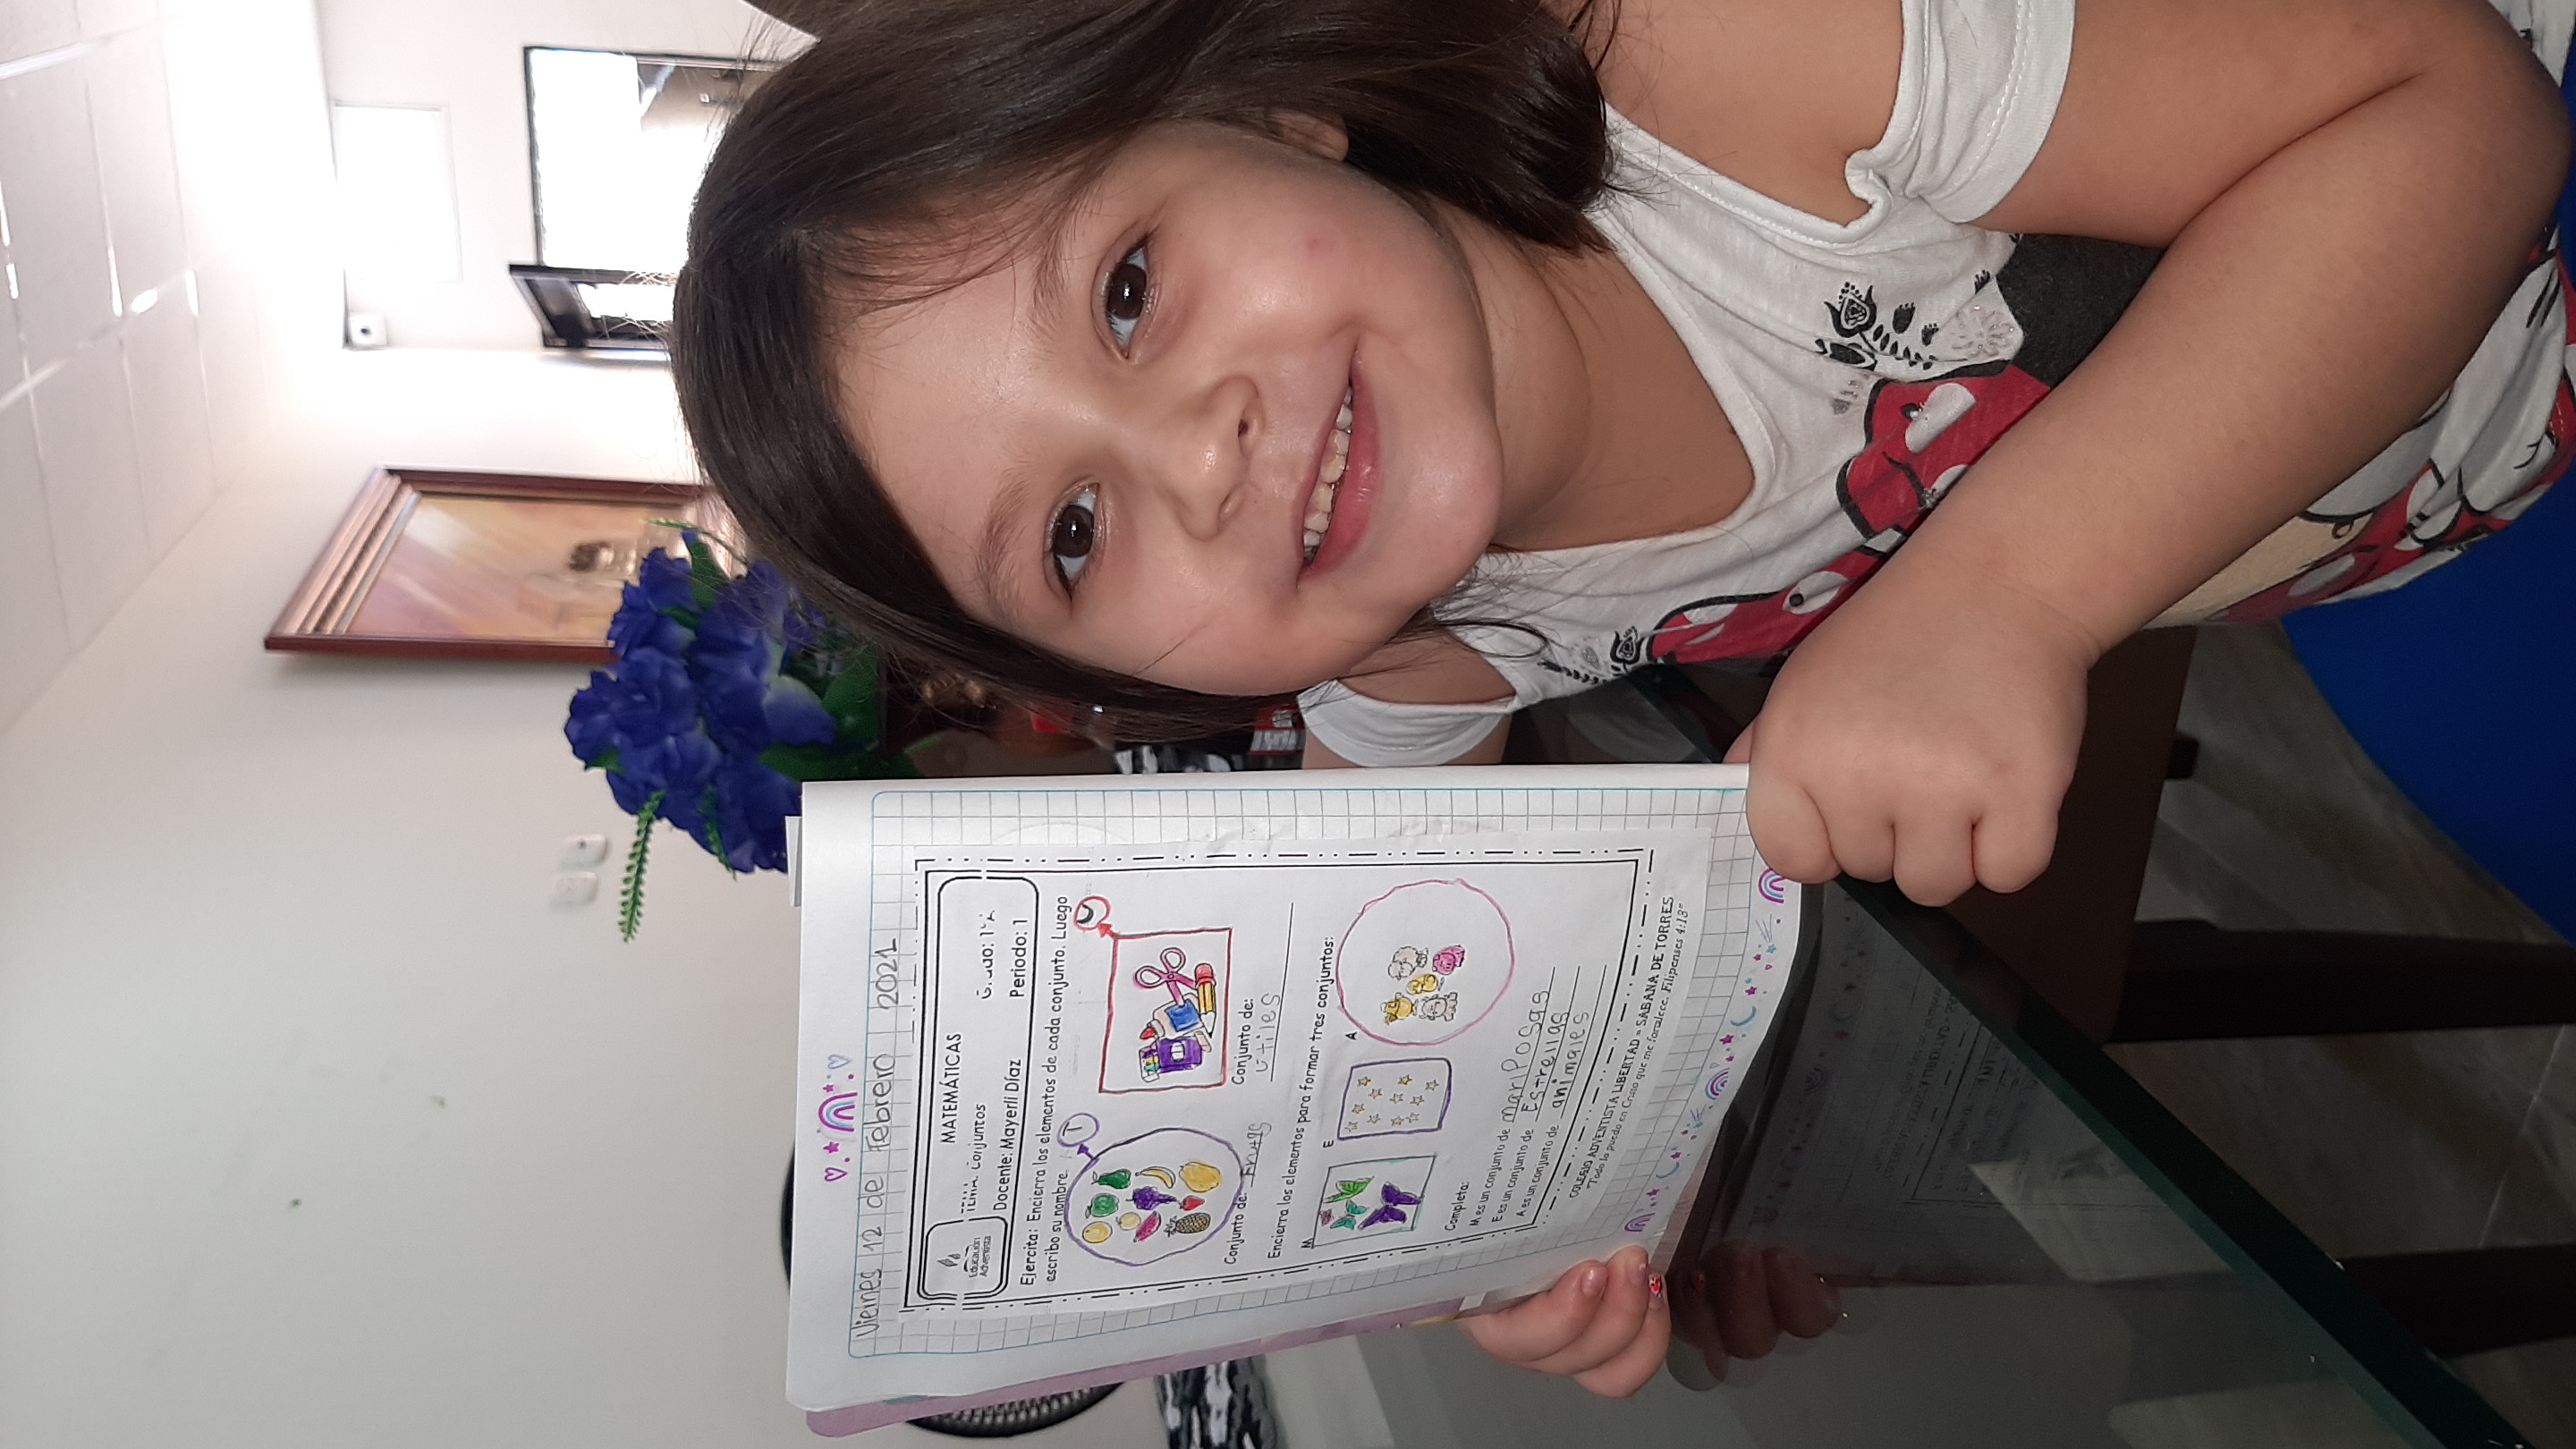 Viernes 12 de Febrero 2021
MATEMÁTICAS
Educación
Adventista
TEMA: Conjuntos
Grado: 1°A
Docente: Mayerli Díaz
Periodo: 1
Ejercita: Encierra los elementos de cada conjunto. Luego
escribo su nombre.
Conjunto de: Frutas
Conjunto de:
Utiles
Encierra los elementos para formar tres conjuntos:
M
E
A
Completa:
M es un conjunto de mariposas
E es un conjunto de Estrellas
A es un conjunto de animales
COLEGIO ADVENTISTA LIBERTAD – SABANA DE TORRES
"Todo lo puedo en Cristo que me fortalece. Filipenses 4:13"